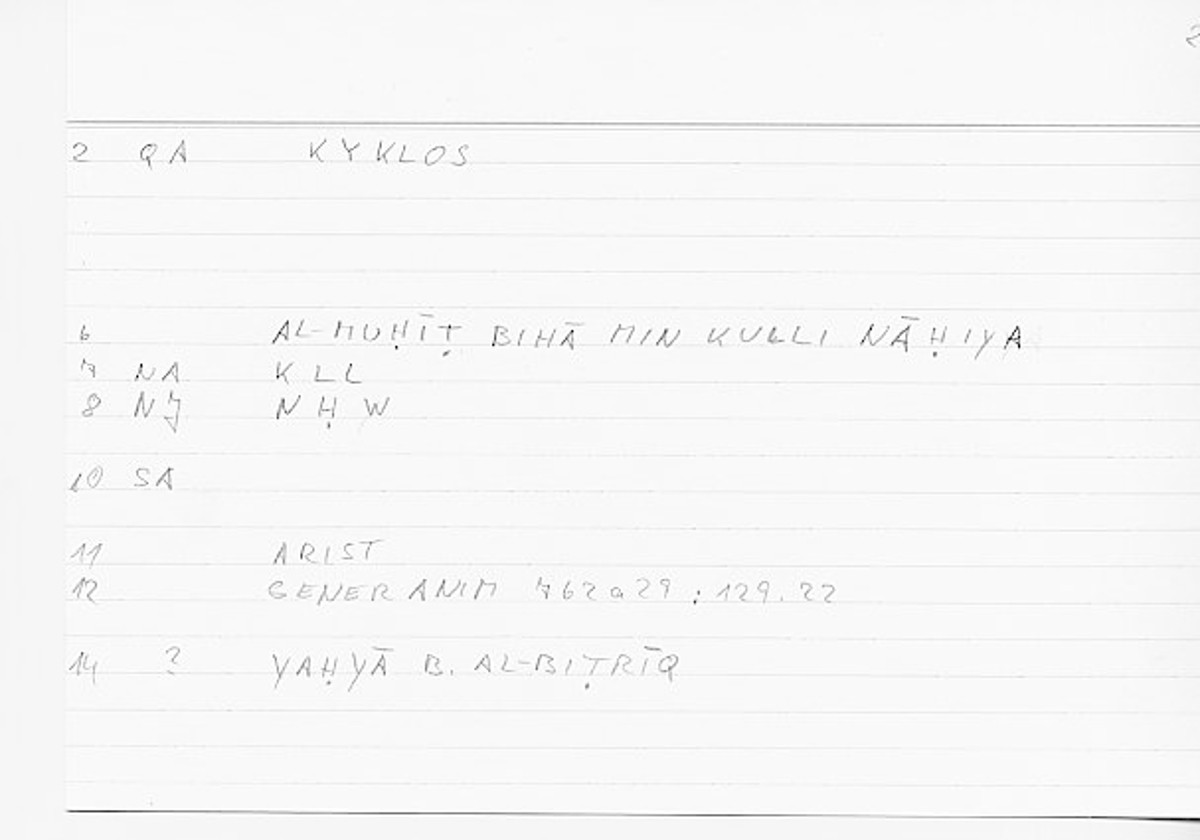 2
2 QA KYKLOS
6 AL-MUḤĪṬ BIHĀ MIN KULLI NĀḤIYA
7 NA KLL
8 NJ NḤW
10 SA
11 ARIST
12 GENER ANIM 762a29 : 129.22
14 ? YAḤYĀ B. AL-BIṬRĪQ